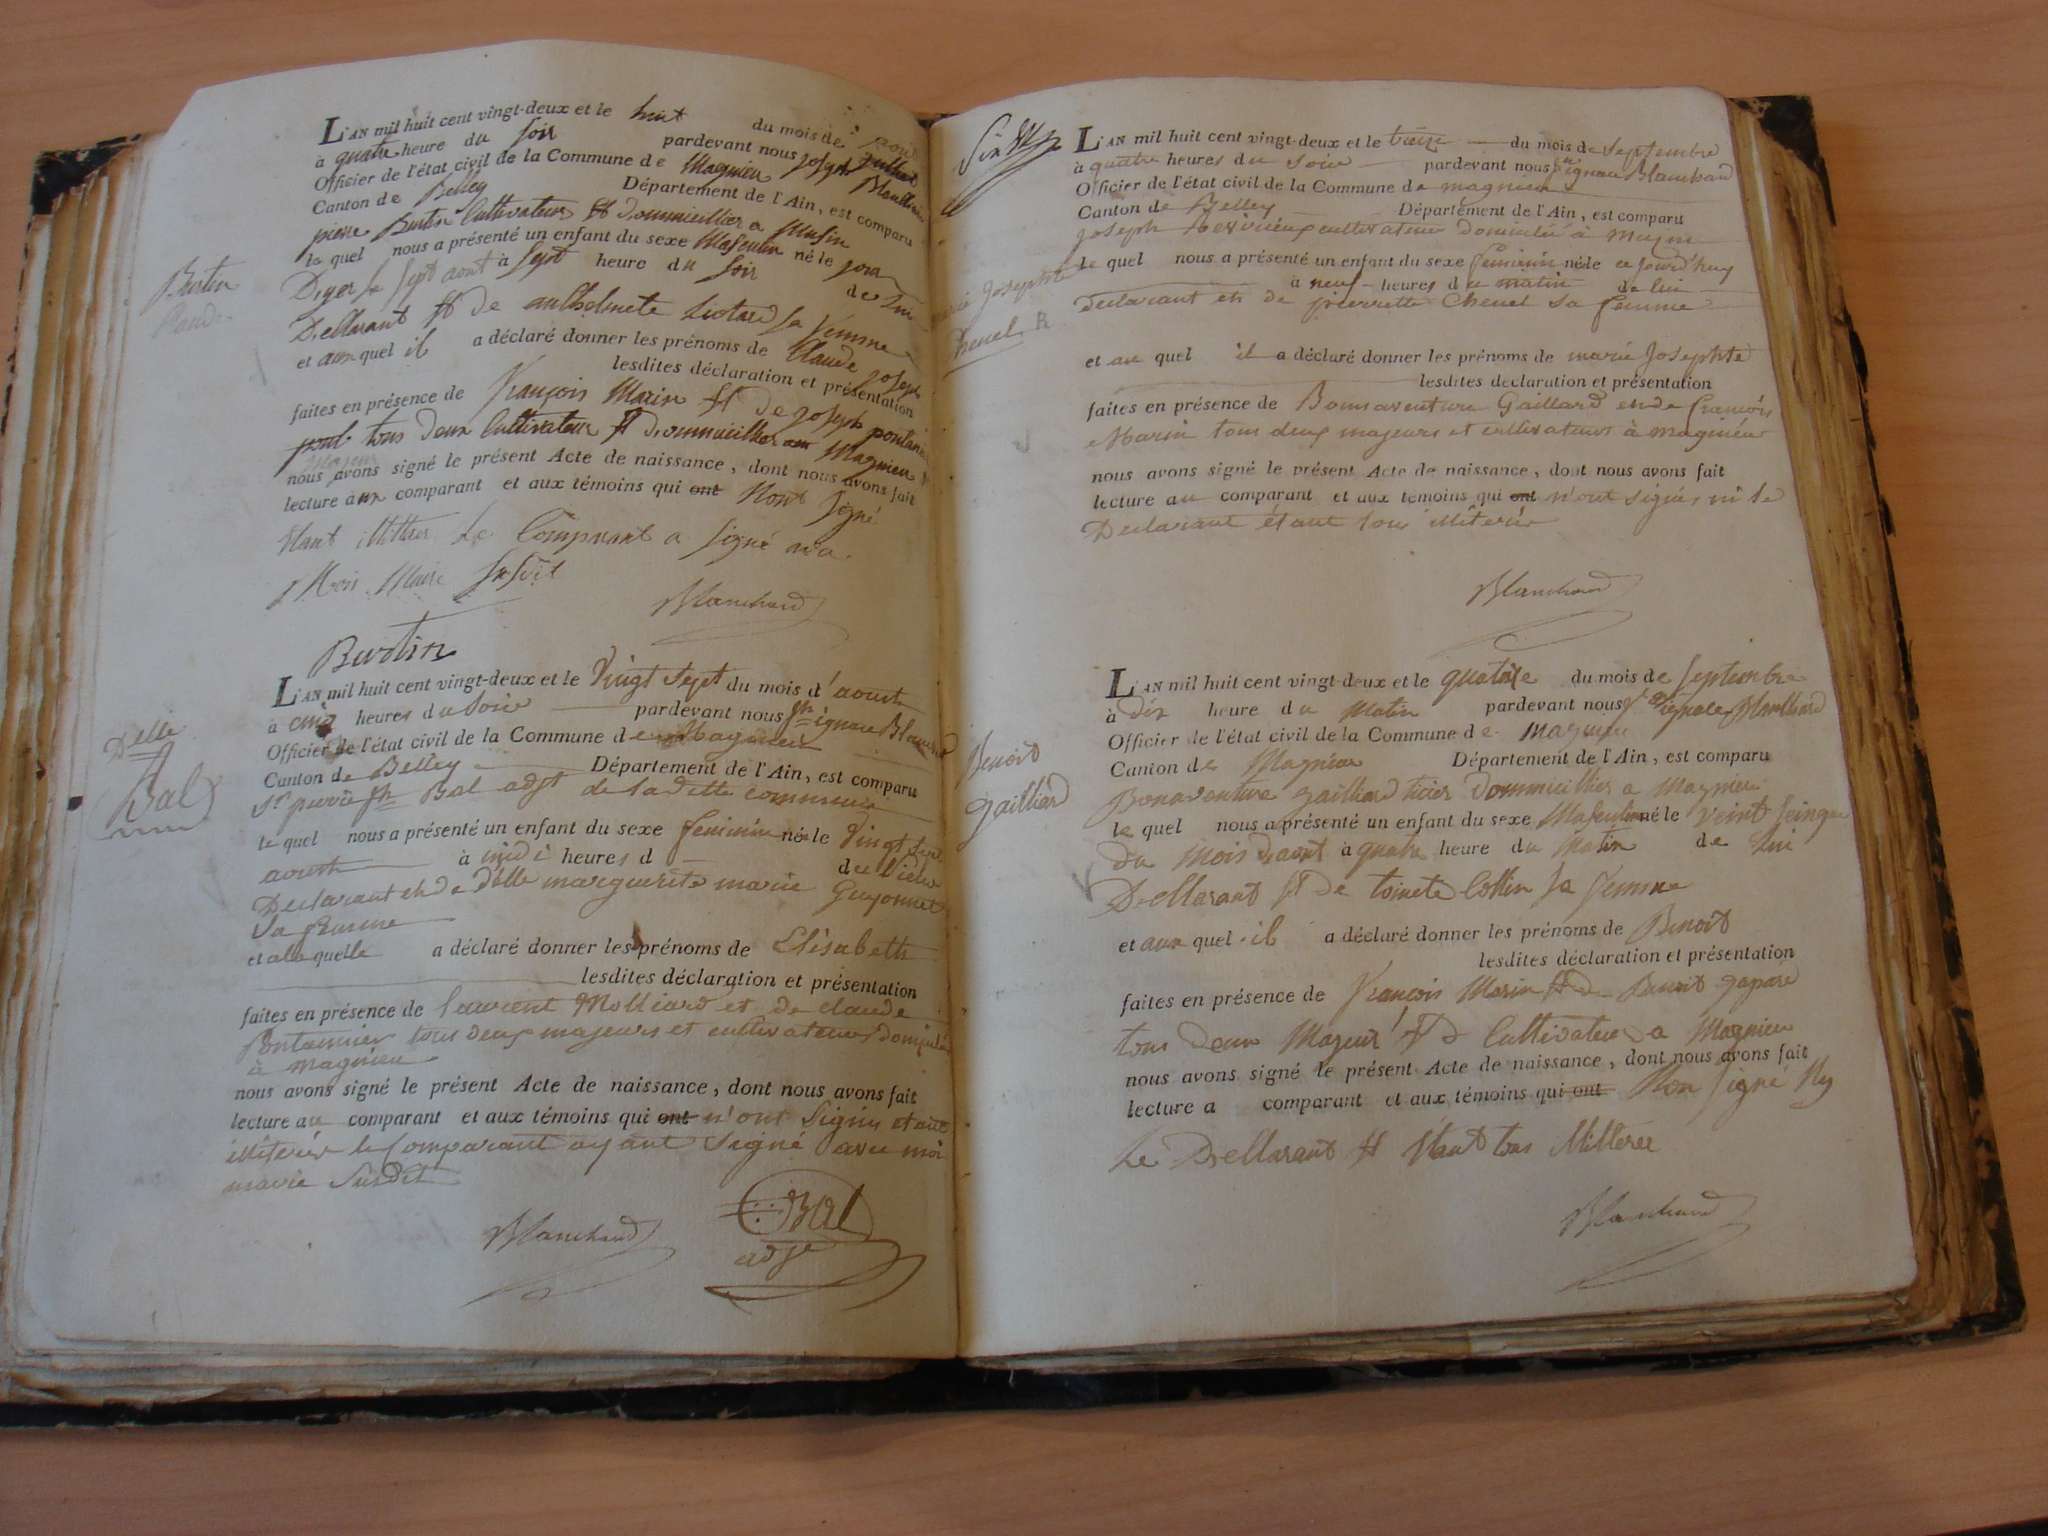 L'AN mil huit cent vingt-deux et le huit du mois de aout
à quatre heure du soir pardevant nous joseph
Officier de l'état civil de la Commune de Magnieu Blanchard
Canton de Belley Département de l'Ain, est comparu
pierre Burtin Cultivateur dommicillier a Musin
le quel nous a présenté un enfant du sexe Masculin né le jour
Dyer sept aout à sept heure du soir de lui
Decllarant de anthelmete sa femme
et aux quel il a déclaré donner les prénoms de Claude joseph
lesdites déclaration et présentation
faites en présence de François Marin de joseph pontanier
tous deux Cultivateur Magnieu
nous avons signé le présent Acte de naissance, dont nous avons fait
lecture aux comparant et aux témoins qui ont Nont signé
Le Comparant a signé
Moi Maire
Blanchard
Burtin
Burtin
Claude
L'AN mil huit cent vingt-deux et le vingt sept du mois d'aoust
à cinq heures du soire pardevant nous jh ignace Blanchard
Officier de l'état civil de la Commune de Magnieu
Canton de Belley Département de l'Ain, est comparu
Sr pierre jh Bal adjt de la dette commune
le quel nous a présenté un enfant du sexe feminin né le vingt sept
aoust à midi heures d du
Declarant et de Delle marguerite marie Guyonnet
sa femme
et a la quelle a déclaré donner les prénoms de Elisabeth
lesdites déclaration et présentation
faites en présence de laurent Molliard et de claude
Pontannier tous deux majeurs et cultivateurs domicilié
à magnieu
nous avons signé le présent Acte de naissance, dont nous avons fait
lecture au comparant et aux témoins qui ont n'ont signés etant
illiterés le Comparant ayant signé avec moi
maire susdit
Blanchard
Bal
adjt
Delle
Bal
L'AN mil huit cent vingt-deux et le treize du mois de septembre
à quatre heures du soire pardevant nous jh ignace Blanchard
Officier de l'état civil de la Commune de magnieu
Canton de Belley Département de l'Ain, est comparu
joseph cultivateur domicilié à
le quel nous a présenté un enfant du sexe feminin né le ce jourd'huy
à neuf heures du matin de lui
declarant et de pierrette Chenel sa femme
et au quel il a déclaré donner les prénoms de marie Josephte
lesdites declaration et présentation
faites en présence de Bonnaventure Gaillard et de françois
Marin tous deux majeurs et cultivateurs à magnieu
nous avons signé le présent Acte de naissance, dont nous avons fait
lecture au comparant et aux témoins qui ont n'ont signés ni le
Declarant étant tous illiterés
Blanchard
marie Josephte
Chenel
L'AN mil huit cent vingt-deux et le quatorze du mois de septembre
à dix heure du Matin pardevant nous jh ignace Blanchard
Officier de l'état civil de la Commune de Magnieu
Canton de Magnieu Département de l'Ain, est comparu
Bonaventure gailliard dommicillier a Magnieu
le quel nous a présenté un enfant du sexe Masculin né le veint seinque
du mois daout à quatre heure du Matin de lui
Decllarant de toinete Collin sa femme
et aux quel il a déclaré donner les prénoms de Benoit
lesdites déclaration et présentation
faites en présence de François Marin Benoit
tous deux Majeur Cultivateur a Magnieu
nous avons signé le présent Acte de naissance, dont nous avons fait
lecture a comparant et aux témoins qui ont Non signé Ny
Le Decllarant tous
Blanchard
Benoit
gailliard